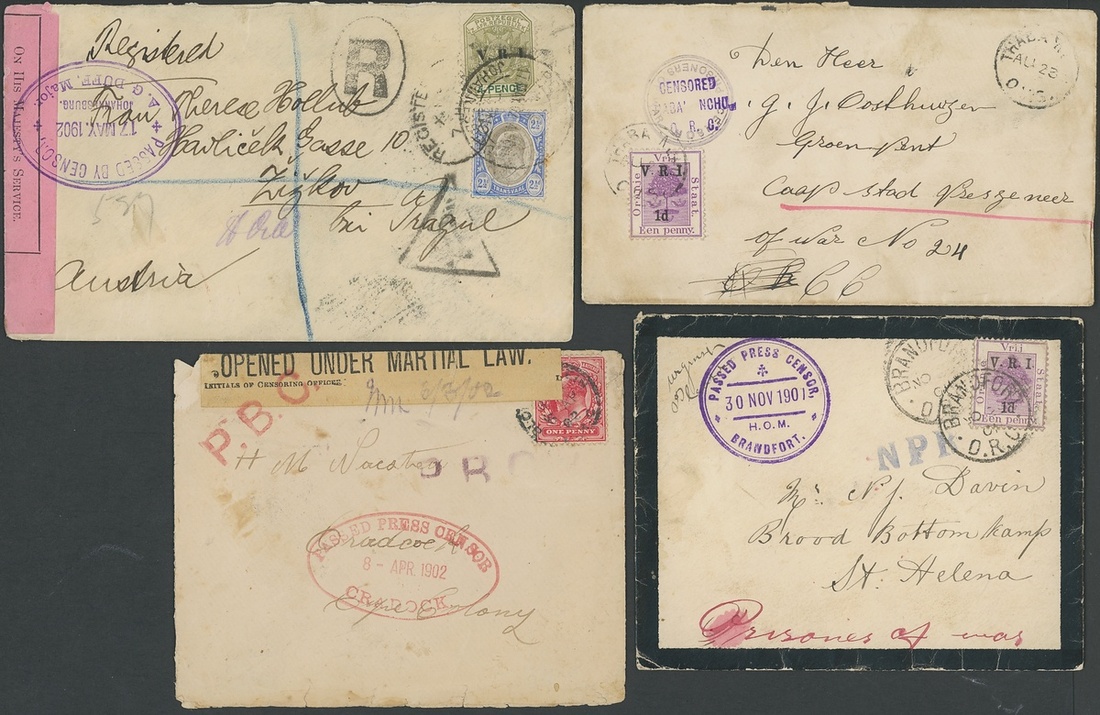 ON HIS MAJESTY'S SERVICE.
Registered
R
PASSED BY CENSOR
17 MAY. 1902
A. G. DUFF, Major.
JOHANNESBURG.
V. R. I.
PENCE
REGISTE
2½ 2½
TRANSVAAL
Frau Therese Hollub
Havliček Gasse 10
Žižkov
bei Prague
Austria
CENSORED
THABA' NCHU,
O. R. C.
THABA N
AU 23
O.R.C.
Vrij
V. R. I.
Oranje Staat.
1d
Een penny.
Den Heer
G. J. Oosthuizen
Groen Punt
Caap Stad
of War No 24
C C
OPENED UNDER MARTIAL LAW.
INITIALS OF CENSORING OFFICER
P.B.C.
ONE PENNY
H M
P B C
Cradock
Cape Colony
PASSED PRESS CENSOR
8 - APR. 1902
CRADOCK
PASSED PRESS CENSOR,
30 NOV 1901
H.O.M.
BRANDFORT.
BRANDFORT
NO
O.R.C.
BRANDFORT
O.R.C.
Vrij
V. R. I.
Staat.
1d
Een penny.
Mr N. J. Davin
Brood Bottom Kamp
St. Helena
Prisones of war